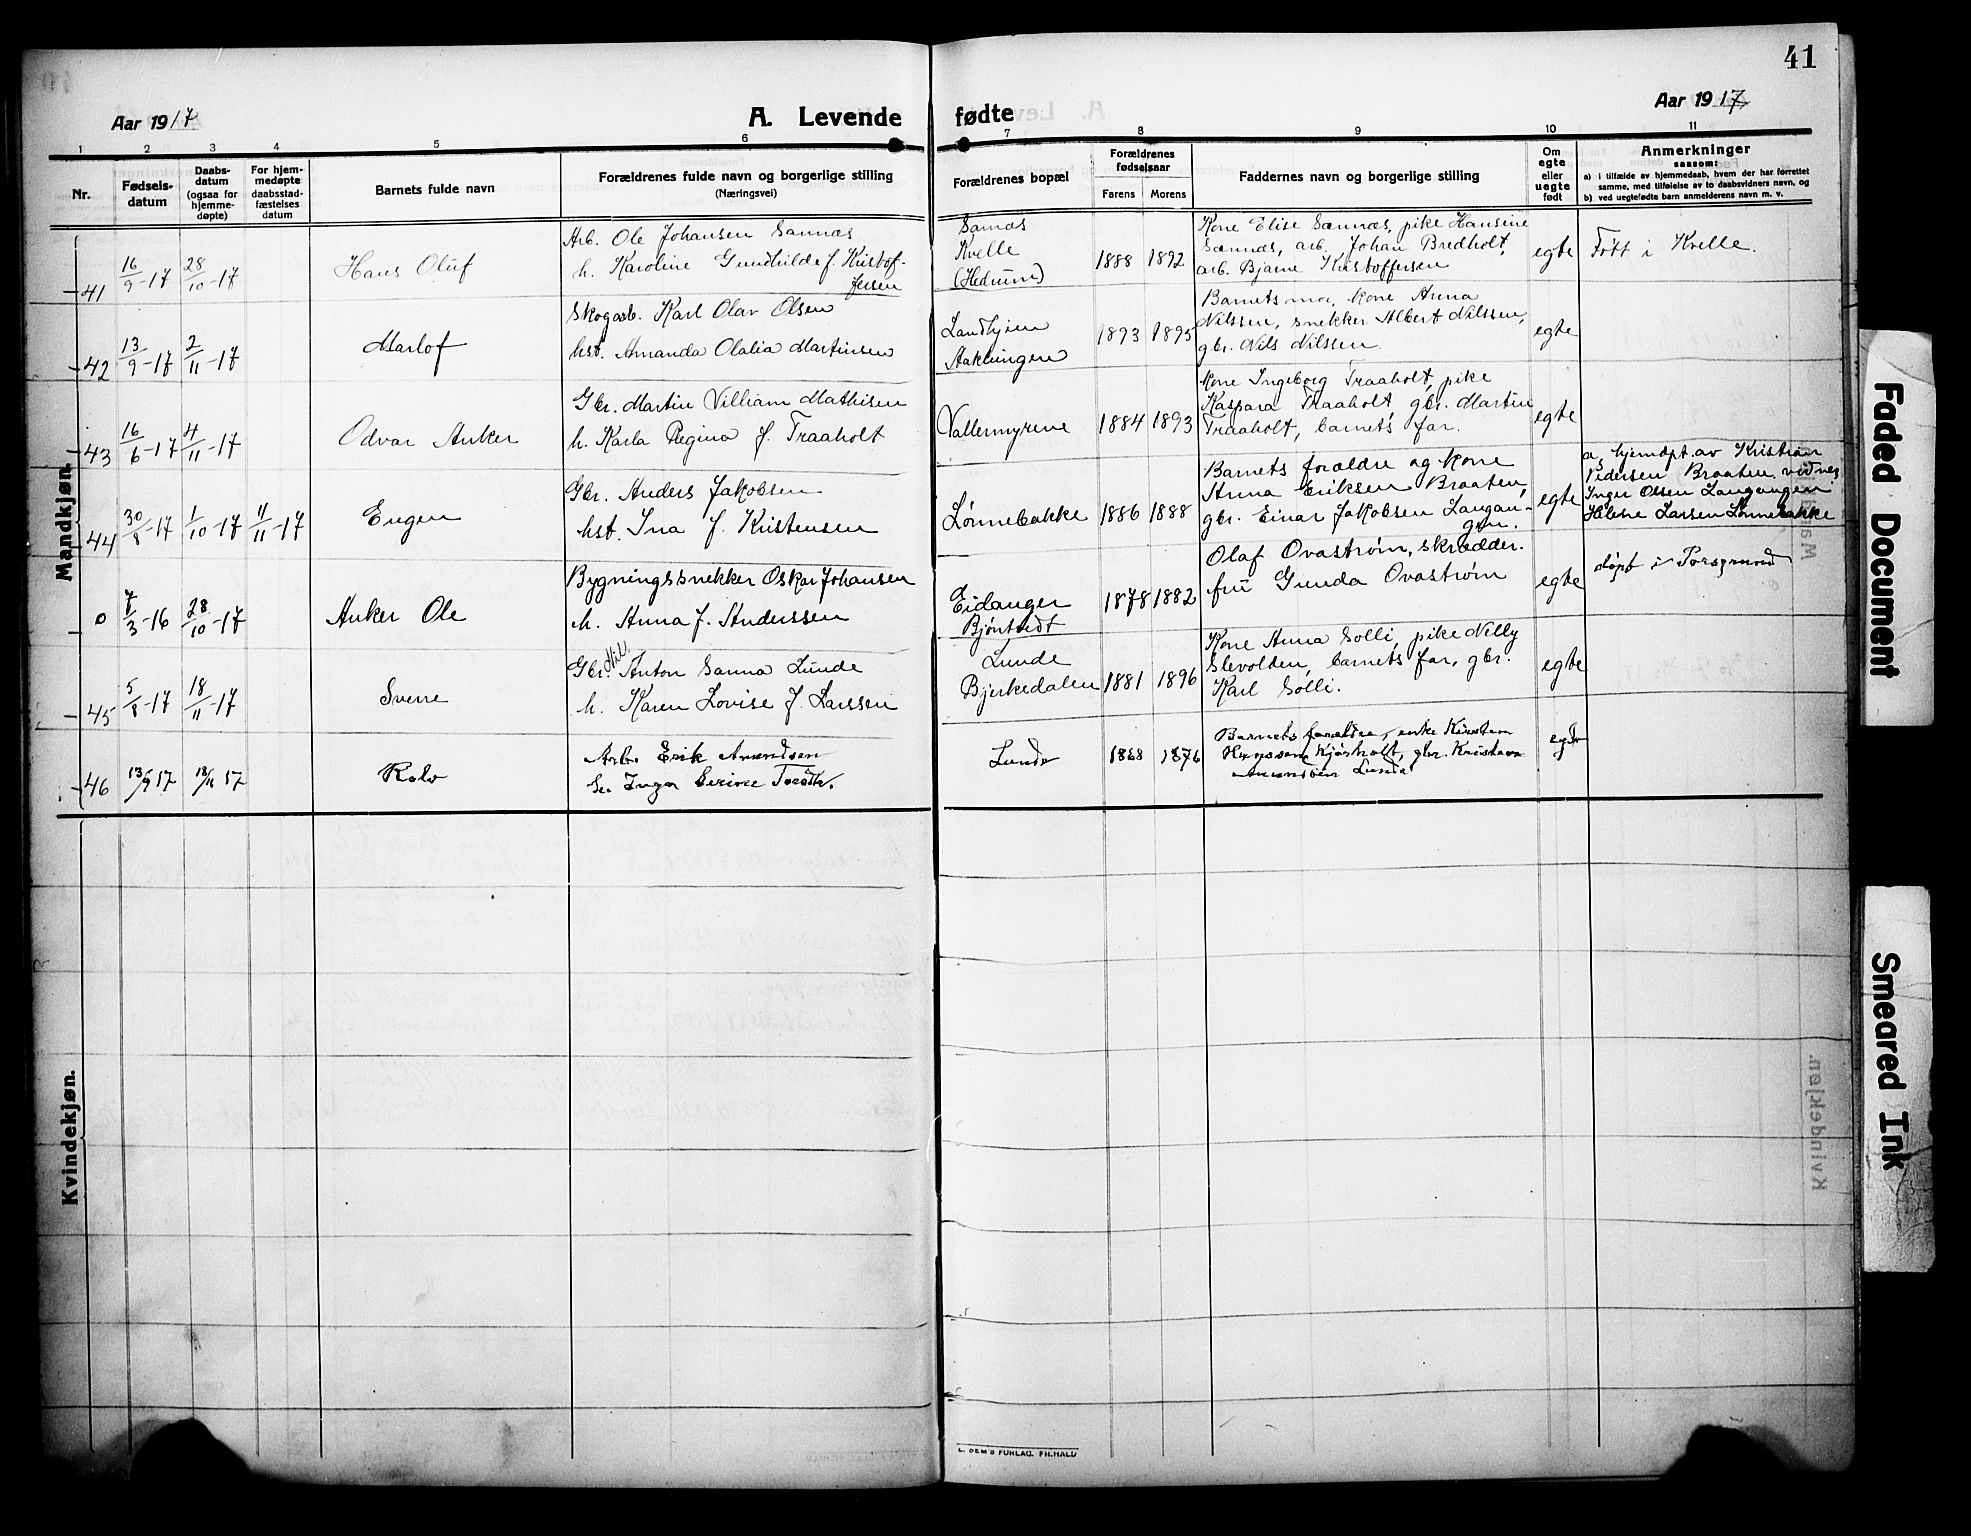 41
Aar 1917
A. Levende fødte
Aar 1917
1 2 3 4 5 6 7 8 9 10 11
Nr.
Fødsels-
datum
Daabs-
datum
(ogsaa for
hjemme-
døpte)
For hjem-
medøpte
daabsstad-
fæstelses
datum
Barnets fulde navn
Forældrenes fulde navn og borgerlige stilling
(Næringsvei)
Forældrenes bopæl
Forældrenes
fødselsaar
Farens Morens
Faddernes navn og borgerlige stilling
Om
egte
eller
uegte
født
Anmerkninger
saasom:
a) i tilfælde av hjemmedaab, hvem der har forrettet
samme, med tilføielse av to daabsvidners navn, og
b) ved uegtefødte barn anmelderens navn m. v.
Mandkjøn.
41
16/9-17
28/10-17
Hans Oluf
Arb. Ole Johansen Sannæs
h. Karoline Gunhilde f. Kristof-
fersen
Kvelle
(Hedrum)
1888 1892
Kone Elise Sannæs, pike Hansine
Sannæs, arb. Johan Bredholt,
arb. Bjarne Kristoffersen
egte
Født i Kvelle.
42
13/9-17
2/11-17
Marlof
Skogarb. Karl Olav Olsen
hst. Amanda Olalia Martinsen
Landhjem
Aaklungen
1893 1895
Barnets mor, kone Anna
Nilssen, snekker Albert Nilssen,
gbr. Nils Nilssen.
egte
43
16/6-17
4/11-17
Odvar Anker
Gbr. Martin Villiam Mathisen
h. Karla Regina f. Traaholt
Vallermyrene
1884 1893
Kone Ingeborg Traaholt, pike
Kaspara Traaholt, gbr. Martin
Traaholt, barnets far.
egte
44
30/8-17
1/10-17
11/11-17
Eugen
Gbr. Anders Jakobsen
hst. Ina f. Kristensen
Lønnebakke
1886 1888
Barnets forældre og kone
Anna Eriksen Braaten,
gbr. Einar Jakobsen Langan-
gen.
egte
a, hjemdpt av Kristian
Pedersen Braaten vidner
Inger Olsen Langangen
Helene Larsen Lønnebakke
0
7/3-16
28/10-17
Anker Ole
Bygningssnekker Oskar Johansen
h. Anna f. Anderssen
Eidanger
Bjøntvedt
1878 1882
Olaf Ovastrøm, skrædder.
fru Gunda Ovastrøm
egte
døpt i Porsgrund
45
5/8-17
18/11-17
Sverre
Gbr. Nil. Anton Sanna Lunde
h. Karen Lovise f. Larssen
Lunde
Bjerkedalen
1881 1896
Kone Anna Solli, pike Nelly
Slevolden, barnets far, gbr.
Karl Solli.
egte
46
13/9 17
18/11 17
Rolv
Arb. Erik Amundsen
h. Inger
Lunde
1868 1876
Barnets forældre, enke Kirsten
Kjøsholt, gbr. Kristian
Amundsen Lunde
egte
Kvindekjøn.
E. SEM'S FORLAG. FR.HALD
Faded Document
Smeared Ink